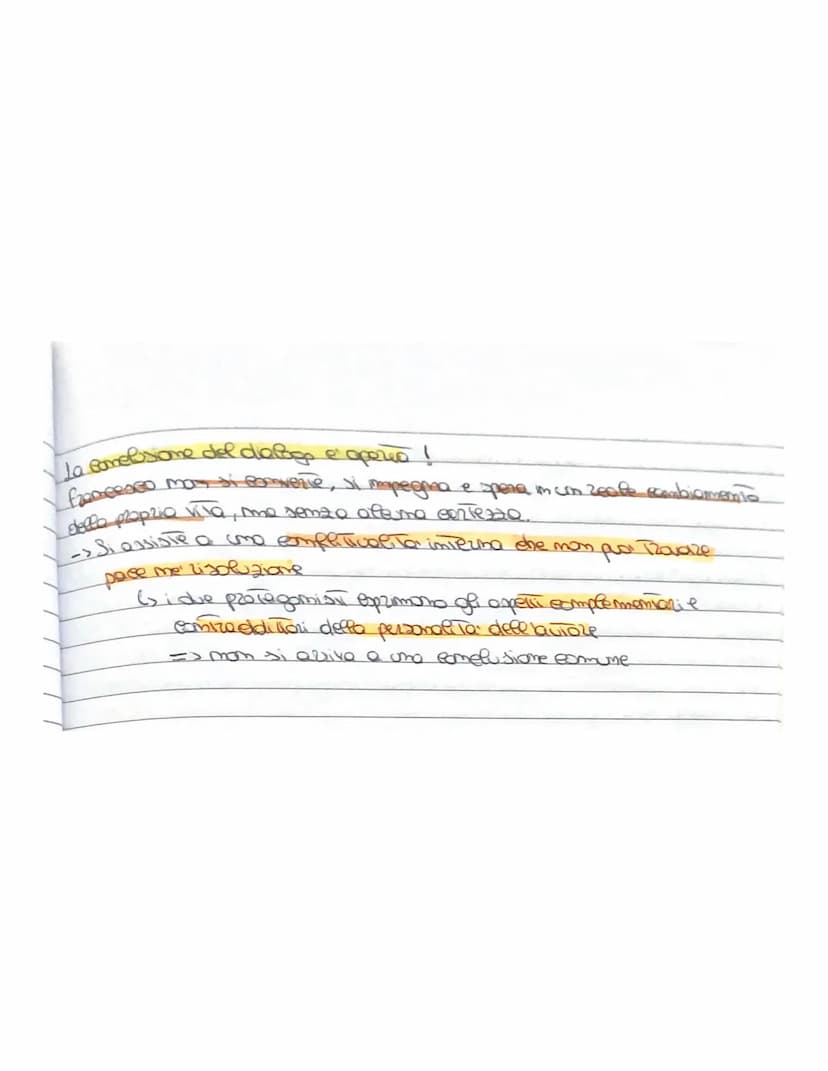 La conclusione del dialogo è aperta!
Francesco non si converte, si impegna e spera in un reale cambiamento
della propria vita, ma senza alcuna certezza.
-> Si assiste a una conflittualità interna che non può trovare
pace né risoluzione
↳ i due protagonisti esprimono gli aspetti complementari e
contraddittori della personalità dell'autore
=> non si arriva a una conclusione comune